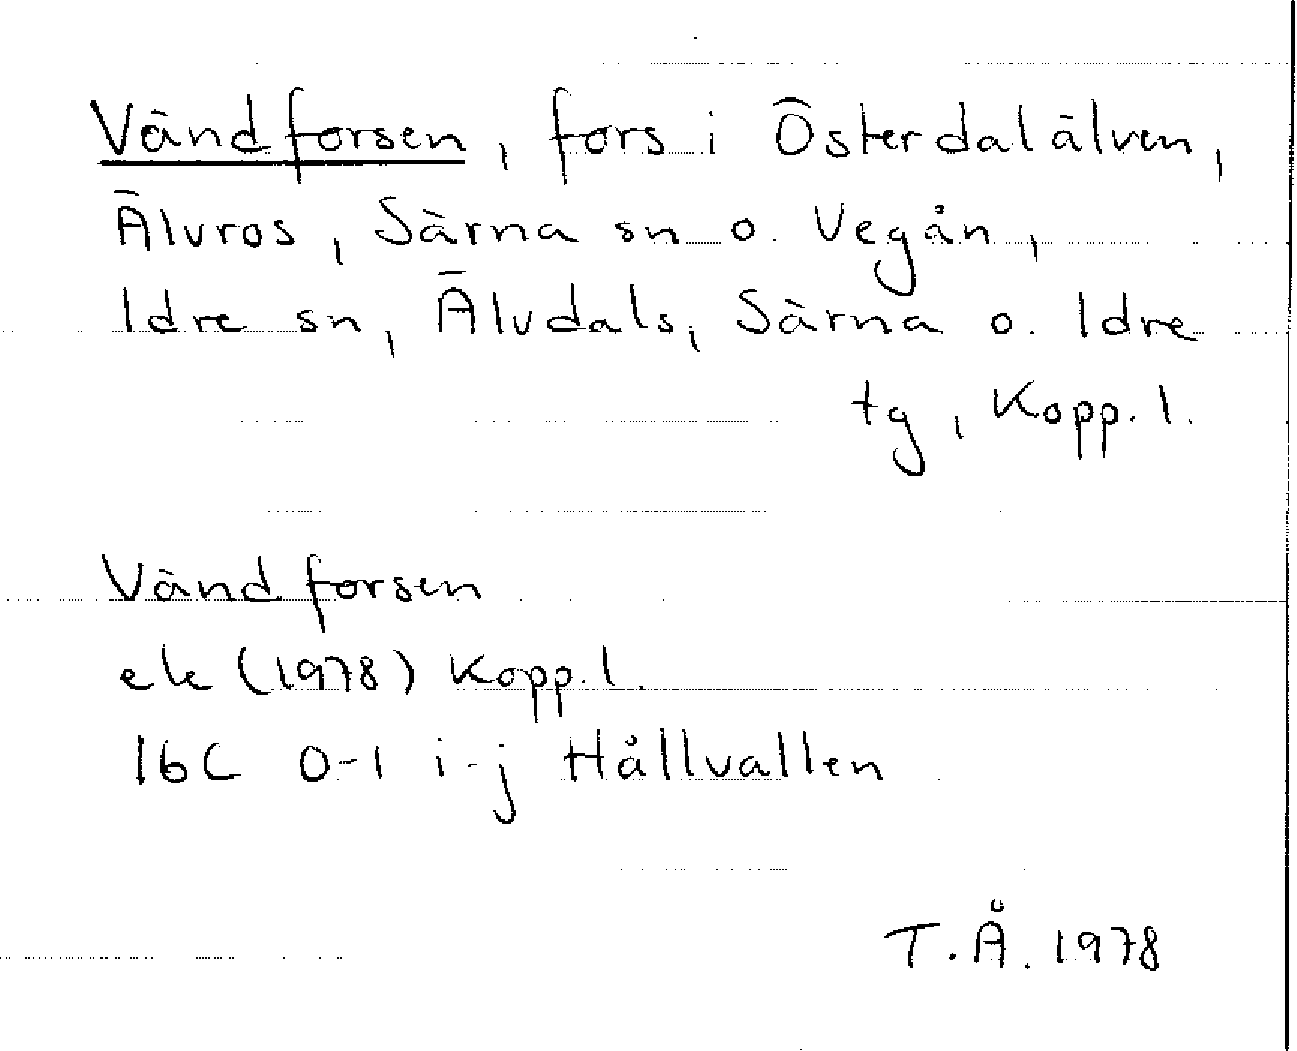 Vändforsen, fors i Österdalälven,
Älvros, Särna sn o. Vegån,
Idre sn, Älvdals, Särna o. Idre
tg, Kopp. l.
Vändforsen
ek (1978) Kopp. l.
16C 0-1 i-j Hållvallen
T.Å. 1978